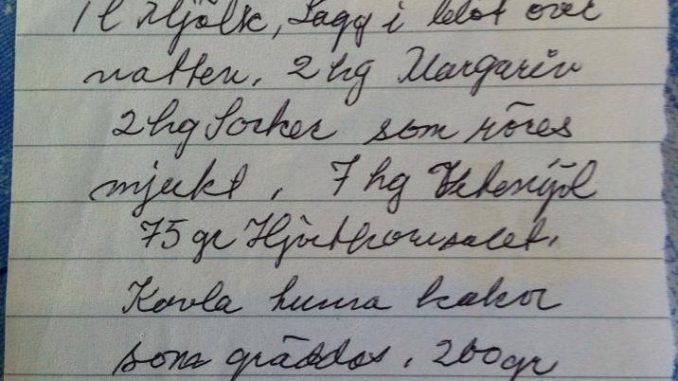 1 l Mjölk, Lägg i blöt över
natten, 2 hg Margarin
2 hg Socker som röres
mjukt, 7 hg Vetemjöl
75 gr Hjorthornsalt.
Kavla tunna kakor
som gräddas, 200 gr